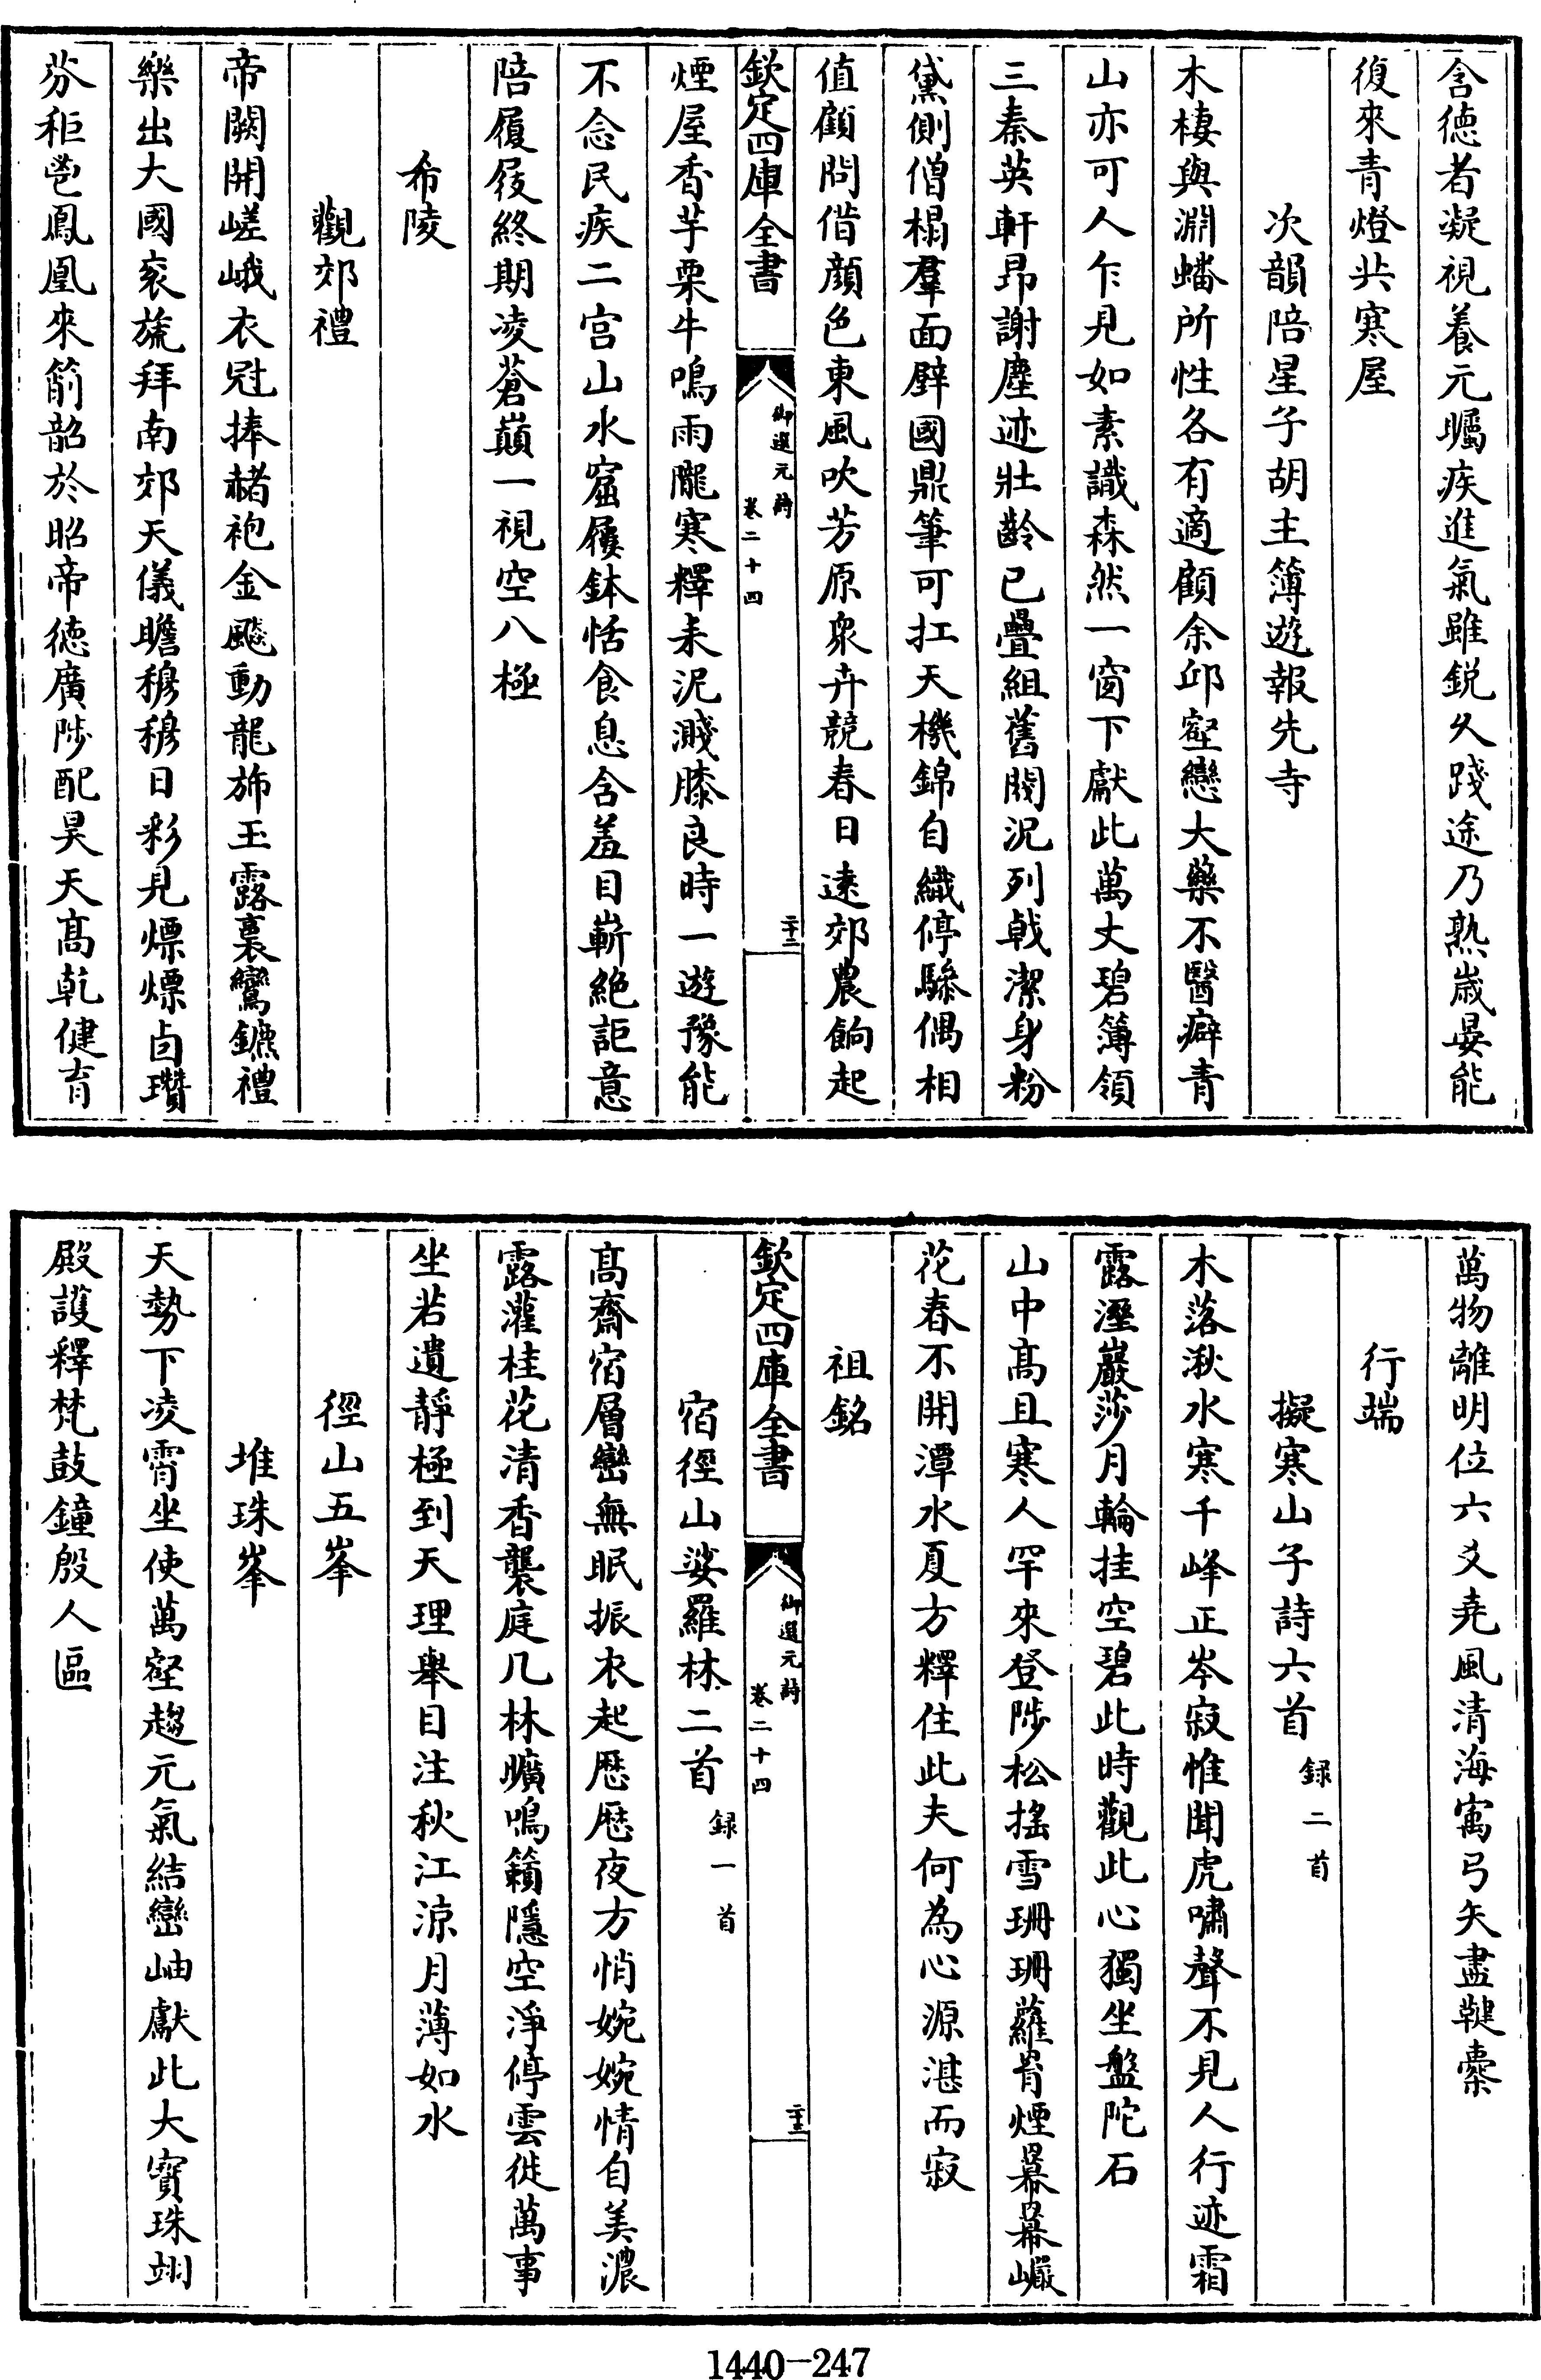 含徳者凝視養元矚疾進氣雖鋭久踐途乃熟歳晏能
復來青燈共寒屋
次韻陪星子胡主簿遊報先寺
木棲與淵蟠所性各有適顧余邱壑戀大藥不醫癖青
山亦可人乍見如素識森然一窗下獻此萬丈碧簿領
三秦英軒昂謝塵迹壯齡已疊組舊閥況列戟潔身粉
黛側僧榻羣面壁國鼎筆可扛天機錦自織停驂偶相
值顧問借顔色東風吹芳原衆卉競春日逺郊農餉起
欽定四庫全書
御選元詩
卷二十四
二十二
煙屋香芋栗牛鳴雨隴寒釋耒泥濺膝良時一遊豫能
不念民疾二宫山水窟屨鉢恬食息含羞目嶄絶詎意
陪履屐終期凌蒼巔一視空八極
希陵
觀郊禮
帝闕開嵯峨衣冠捧赭袍金飈動龍斾玉露裛鸞鑣禮
樂出大國衮旒拜南郊天儀瞻穆穆日彩見熛熛卣瓚
芬秬鬯鳳凰來箾韶於昭帝徳廣陟配昊天髙乾健育
萬物離明位六爻堯風清海寓弓矢盡鞬櫜
行端
擬寒山子詩六首
録二首
木落湫水寒千峰正岑寂惟聞虎嘯聲不見人行迹霜
露溼巖莎月輪挂空碧此時觀此心獨坐盤陀石
山中髙且寒人罕來登陟松搖雪珊珊蘿胃煙冪冪巗
花春不開潭水夏方釋住此夫何為心源湛而寂
祖銘
欽定四庫全書
御選元詩
卷二十四
二十三
宿徑山娑羅林二首
録一首
髙齋宿層巒無眠振衣起歴歴夜方悄婉婉情自美濃
露灌桂花清香襲庭几林曠鳴籟隱空淨停雲徙萬事
坐若遺静極到天理舉目注秋江涼月薄如水
徑山五峯
堆珠峯
天勢下凌霄坐使萬壑趨元氣結巒岫獻此大寶珠翊
殿護釋梵鼓鐘殷人區
1440-247